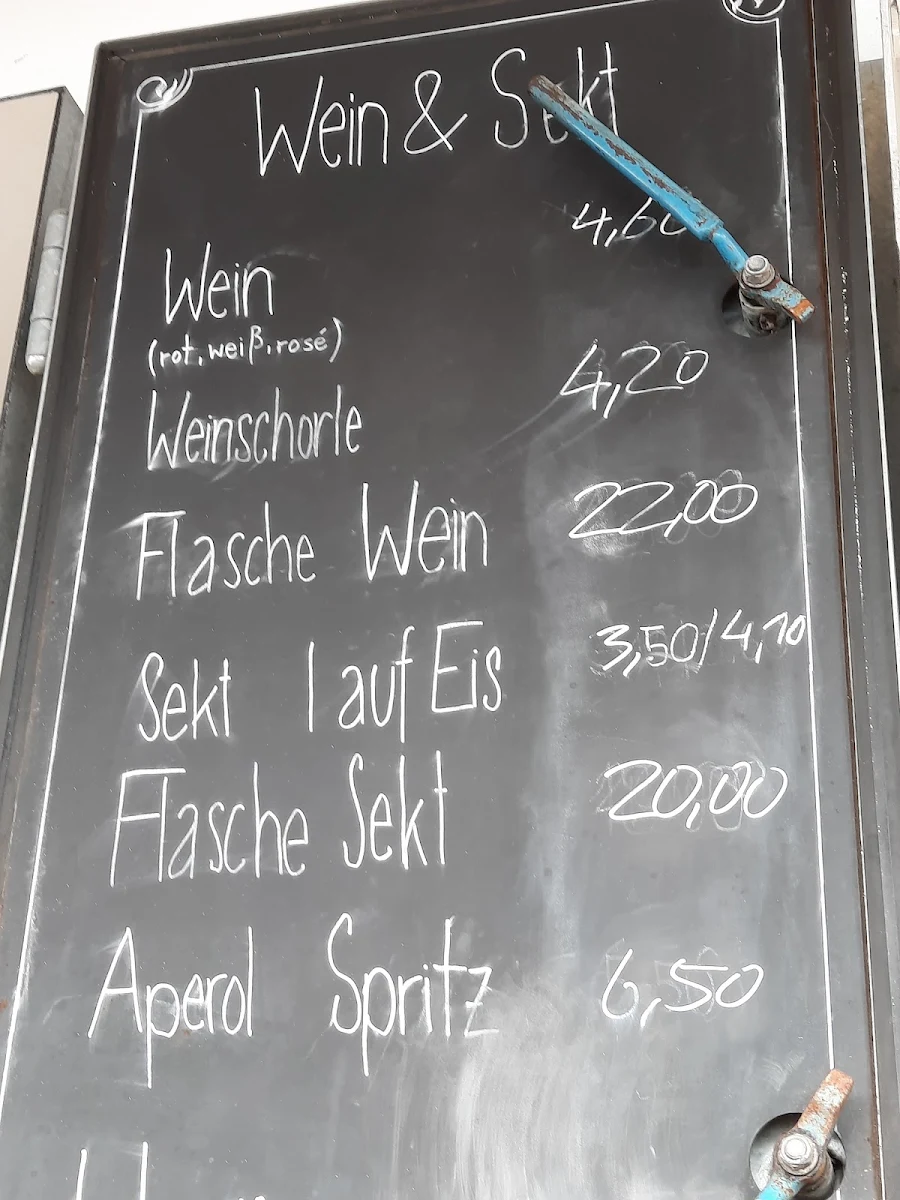 Wein & Sekt
Wein 4,60
(rot, weiß, rosé)
Weinschorle 4,20
Flasche Wein 22,00
Sekt / auf Eis 3,50/4,10
Flasche Sekt 20,00
Aperol Spritz 6,50